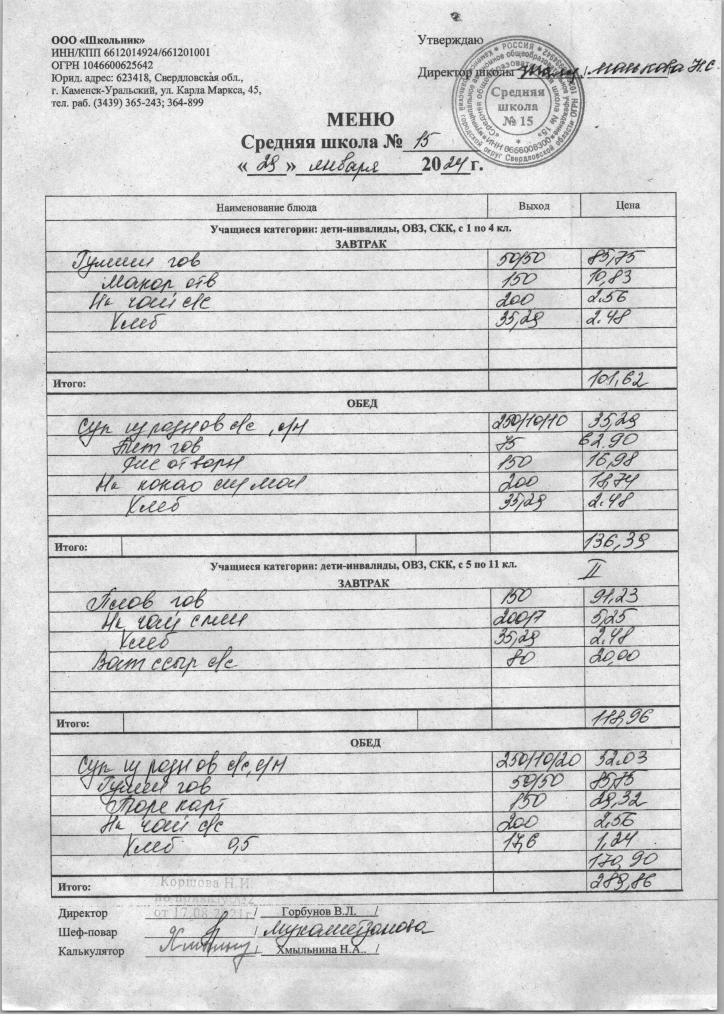 ООО «Школьник»
ИНН/КПП 6612014924/661201001
ОГРН 1046600625642
Юрид. адрес: 623418, Свердловская обл.,
г. Каменск-Уральский, ул. Карла Маркса, 45,
тел. раб. (3439) 365-243; 364-899
Утверждаю
Директор школы
Средняя школа № 15
МЕНЮ
Средняя школа № 15
« 29 » января 2024 г.
Наименование блюда Выход Цена
Учащиеся категории: дети-инвалиды, ОВЗ, СКК, с 1 по 4 кл.
ЗАВТРАК
Гуляш гов 50/50 85,75
Макар отв 150 10,83
На чай с/с 200 2.56
Хлеб 35,29 2.48
Итого: 101,62
ОБЕД
Суп 250/10/10 35,29
гов 75 62.90
Рис отварн 150 16,98
На какао 200 18,74
Хлеб 35,29 2.48
Итого: 136,39
Учащиеся категории: дети-инвалиды, ОВЗ, СКК, с 5 по 11 кл. II
ЗАВТРАК
Плов гов 150 91,23
На чай с лим 200/7 5,25
Хлеб 35,29 2.48
Ват с сыр с/с 80 20,00
Итого: 118,96
ОБЕД
Суп 250/10/20 32.03
Гуляш гов 50/50 85,75
Пюре карт 150 29,32
На чай с/с 200 2,56
Хлеб 0,5 17,6 1,24
170,90
Итого: 289,86
Коршова Н.И.
от 17.08.2021г
Директор / Горбунов В.Л. /
Шеф-повар / Мухаметзанова
Калькулятор / Хмыльнина Н.А.. /